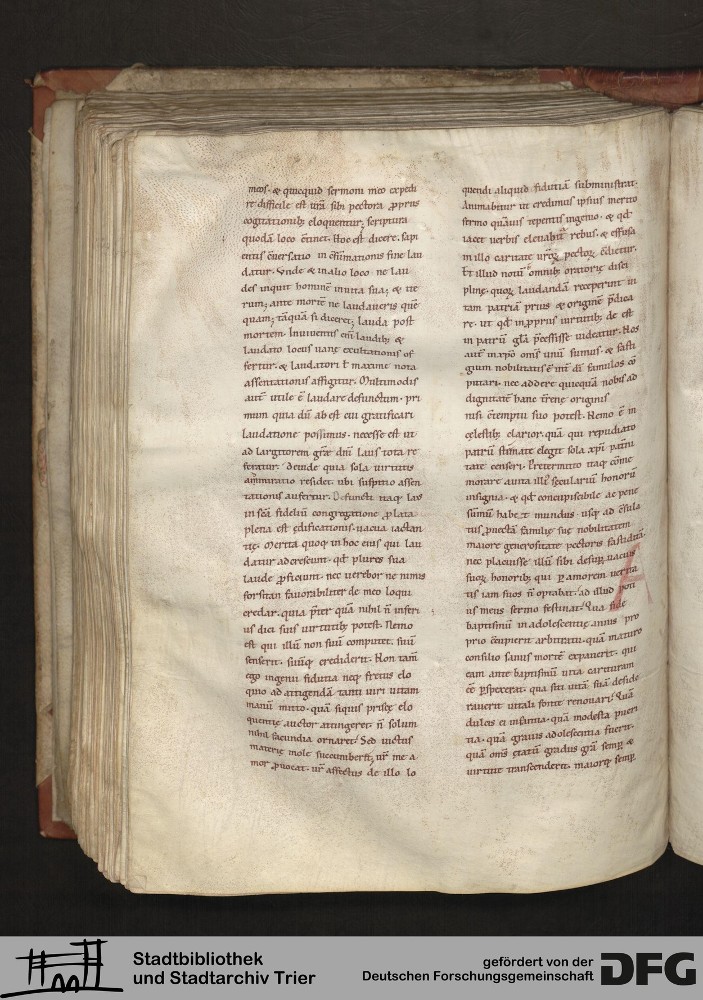 meos. & quicquid sermoni meo expedi
re difficile est urã sibi pectora ꝓprus
cogitationibꝫ eloquentur; scriptura
quodã loco c̃tinet. Hoc est dicere. sapi
entis c̃uersatio in c̃sũmationis fine lau
datur. Vnde & in alio loco ne lau
des inquit hominẽ inuita sua; & ite
rum; ante mortẽ ne laudaueris quẽ
quam; tãquã si diceret; lauda post
mortem. Inuiuentis eni laudibꝫ &
laudato locus uanę exultationis of
fertur. & laudatori ł maxime nota
assentationis affigitur. Multimodis
autẽ utile ẽ laudare defunctum. pri
mum quia dũ ab est cui gratificari
laudatione possimus. necesse est ut
ad largitorem grę diuĩ laus tota re
feratur. deinde quia sola uirtutis
ammiratio residet. ubi suspitio assen
tationis aufertur. Defuncti itaq; laus
in scã fidelium congregatione ꝓlata
plena est ędificationis. uacua iactan
tię. Merita quoq; in hoc eius qui lau
datur adcrescunt. qd̃ plures sua
laude ꝓficiunt. nec uerebor ne nimis
forsitan fauorabiliter de meo loqui
credar. quia p̃ter quã nihil ñ inferi
us dici suis uirtutibꝫ potest. Nemo
est qui illũ non suũ computet. suũ
senserit. suũq; crediderit. Non tam̃
ego ingenii fidutia neq; fretus elo
quio ad attigendã tanti uiri uitam
manũ mitto. quã siquis priscę elo
quentię auctor attingeret. ñ solum
nihil facundia ornaret. Sed uictus
materię mole succumberet; ur̃ me a
mor ꝓuocat. ur̃ affectus de illo lo
quendi aliquid fidutiã subministrat.
Animabitur ut credimus ipsius merito
sermo quãuis repentis ingenio. & qd̃
iacet uerbis eleuabit̃ rebus. & effusa
in illo caritate ur̃oꝝ pectoꝝ c̃dietur.
Et illud notũ omnibꝫ oratorię disci
plinę. quoꝝ laudandã receperint in
tam patriã prius & originẽ p̃dica
re. ut qd̃ in ꝓprus uirtutibꝫ de est
in patrũ gła p̃cessisse uideatur. Nos
autẽ in xp̃o om̃s unũ sumus. & fasti
gium nobilitatis ẽ int̃ dĩ famulos cõ
putari. nec addere quicquã nobis ad
dignitatẽ hanc t̃renę originis
nisi c̃temptu suo potest. Nemo ẽ in
cęlestibꝫ clarior. quã qui repudiato
patrũ stimate elegit sola xp̃i patñi
tate censeri. Pretermitto itaq; cõme
morare auita illis secularium honorũ
insignia. & qd̃ concupiscibile ac pene
sũmũ habet mundus. usq; ad c̃sula
tus ꝓuectã familię suę nobilitatem
maiore generositate pectoris fastiditã.
nec placuisse illũ sibi de suiꝝ uacuis
suoꝝ honoribꝫ. qui p amorem uerita
tis iam suos ñ optabat. ad illud poti
us meus sermo festinat. Qua fide
baptismũ in adolescentię annis pro
prio c̃cupierit arbitratu. quã maturo
consilio sanus mortẽ expauerit. qui
eam ante baptismũ uita carituram
ee ꝓspexerat. qua siti uitã suã deside
rauerit uitali fonte renouari. Quã
dulcis ei infantia. quã modesta pueri
tia. quã grauis adolescentia fuerit.
quã oms̃ ętatũ gradus grã semꝑ &
uirtute transcenderit. maiorq; semꝑ
Stadtbibliothek
und Stadtarchiv Trier
gefördert von der
Deutschen Forschungsgemeinschaft
DFG